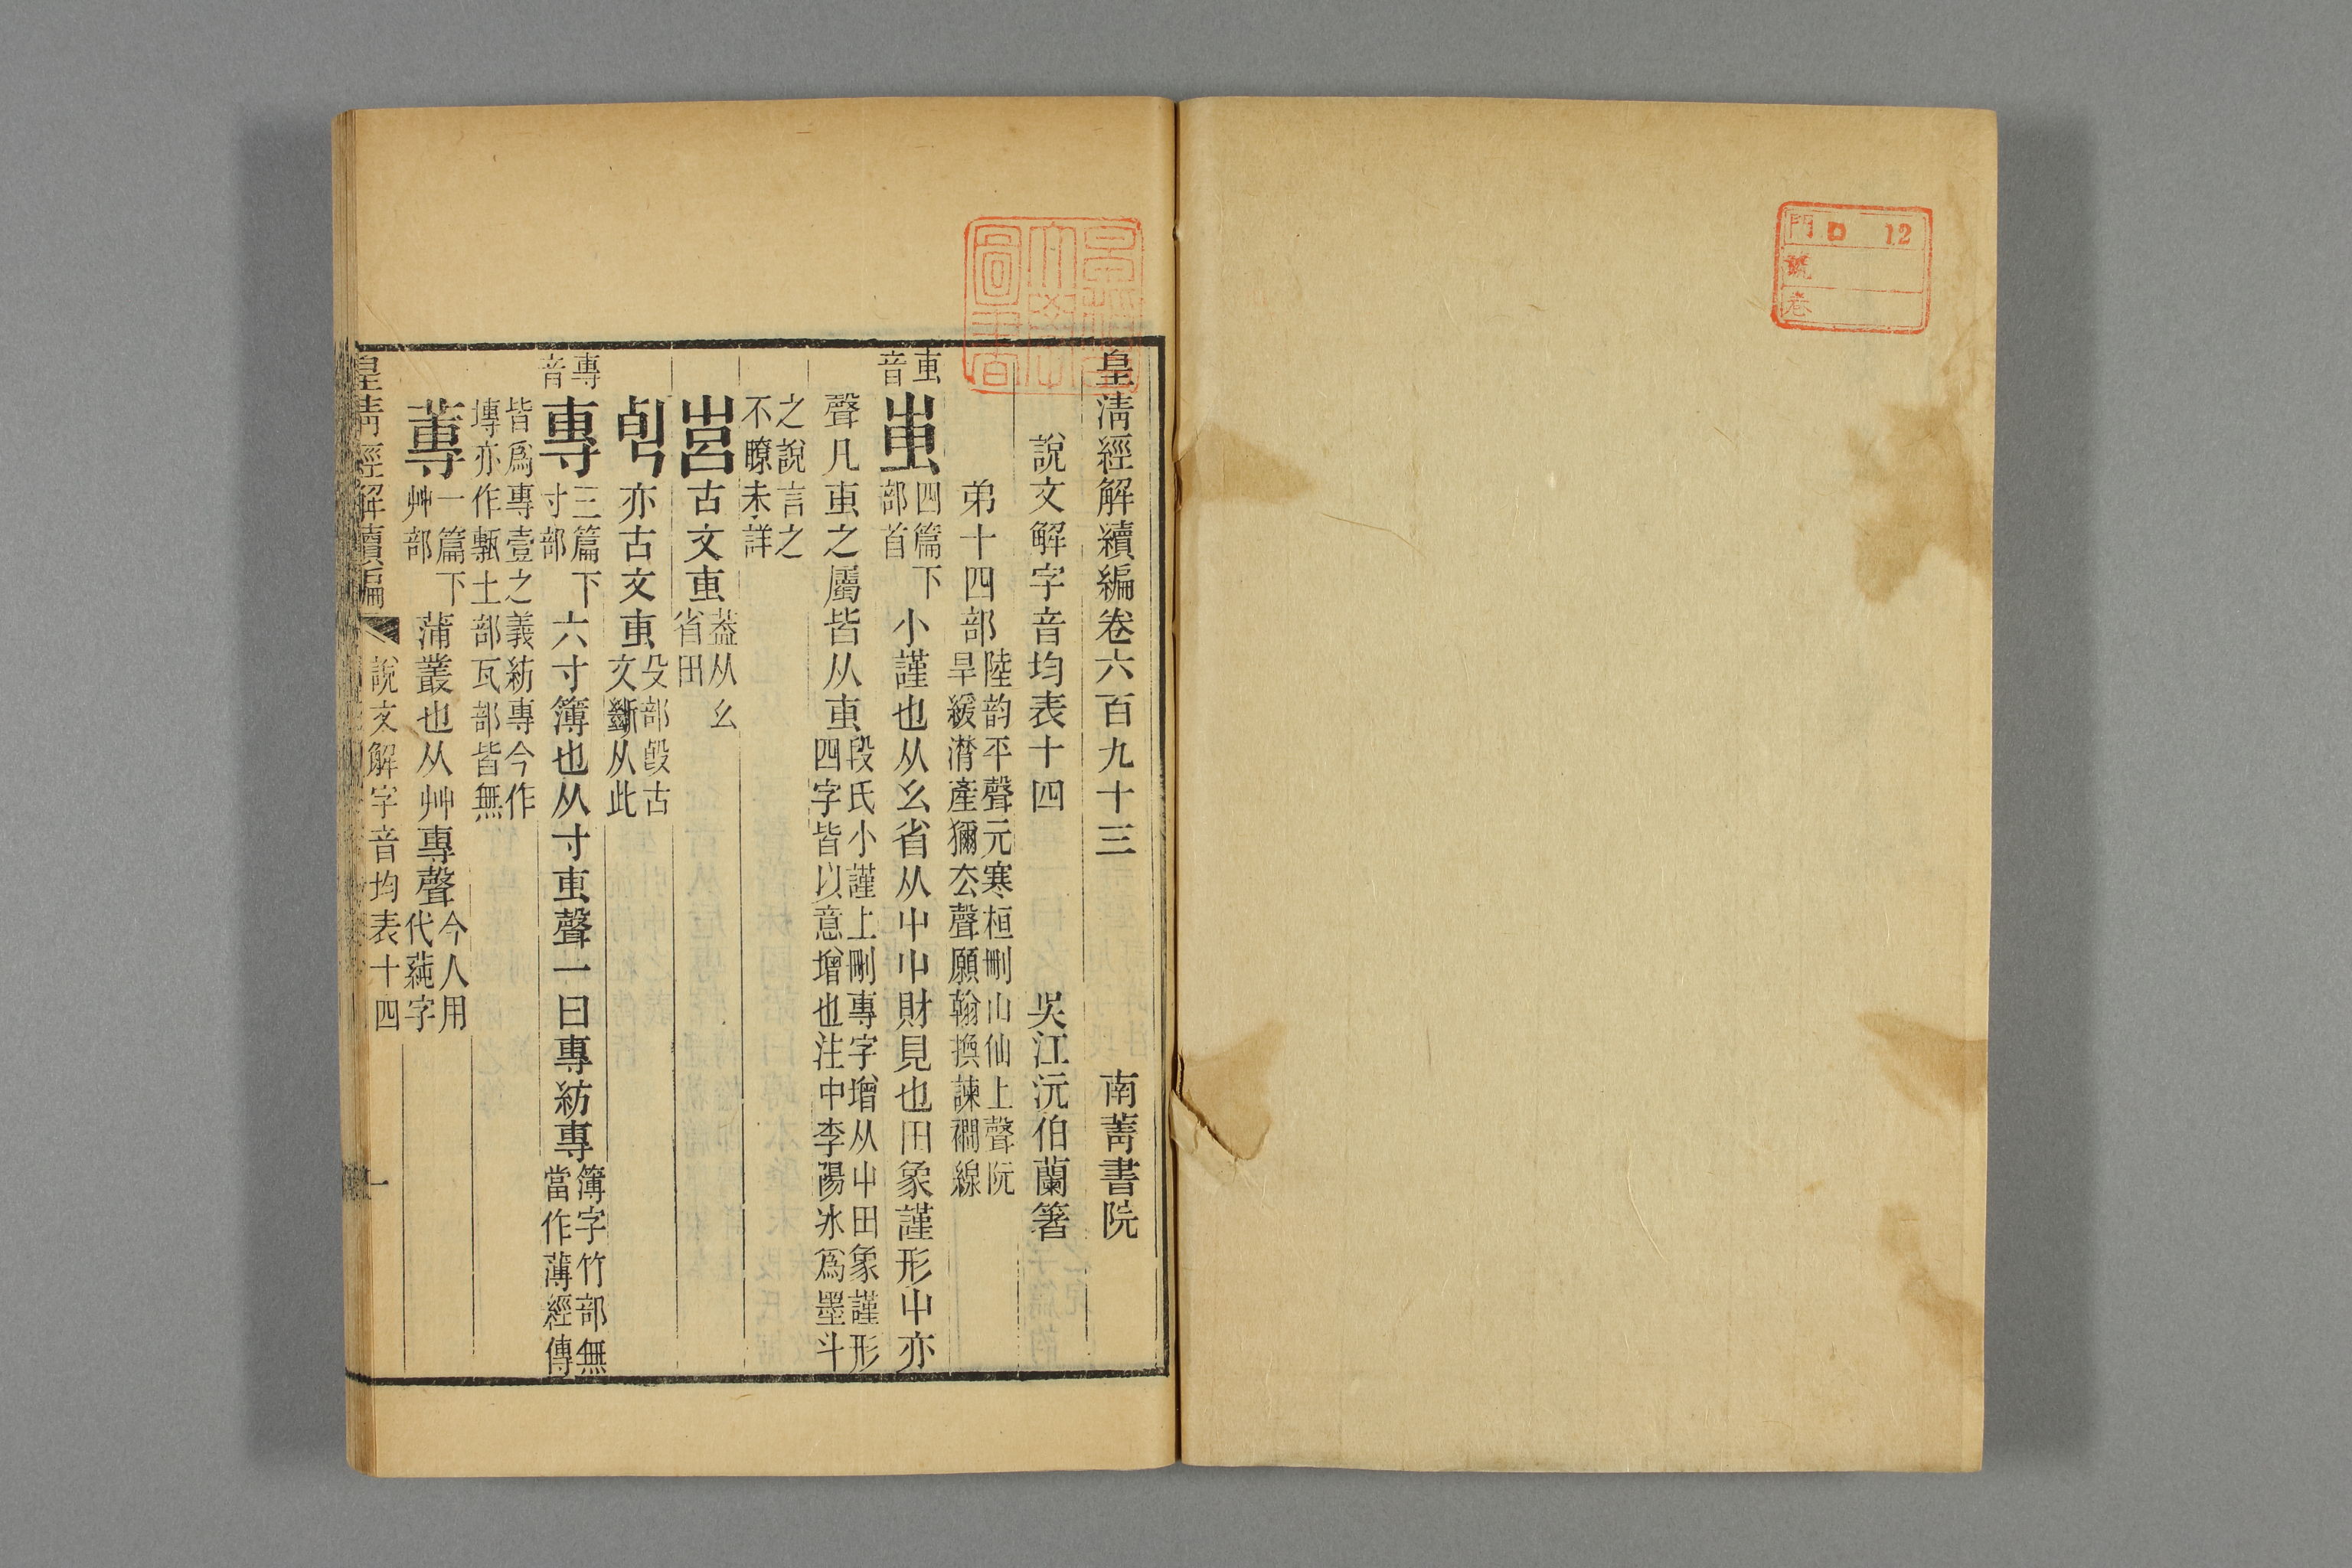 門 口 12
號
卷
皇淸經解續編卷六百九十三 南菁書院
說文解字音均表十四 吳江沅伯蘭箸
弟十四部 陸韵平聲元寒桓刪山仙上聲阮
旱緩潸產獮厺聲願翰換諫襉線
叀音
叀 四篇下部首 小謹也从幺省从屮屮財見也田象謹形屮亦
聲凡叀之屬皆从叀 段氏小謹上刪專字增从屮田象謹形
四字皆以意增也注中李陽冰爲墨斗
之說言之
不瞭未詳
古文叀 葢从幺省田
亦古文叀 殳部𣪘古文斷从此
專音
專 三篇下寸部 六寸簿也从寸叀聲一曰專紡專 簿字竹部無
當作薄經傳
皆爲專壹之義紡專今作
塼亦作甎土部瓦部皆無
蓴 一篇下艸部 蒲叢也从艸專聲 今人用代蒓字
皇淸經解續編 說文解字音均表十四 一